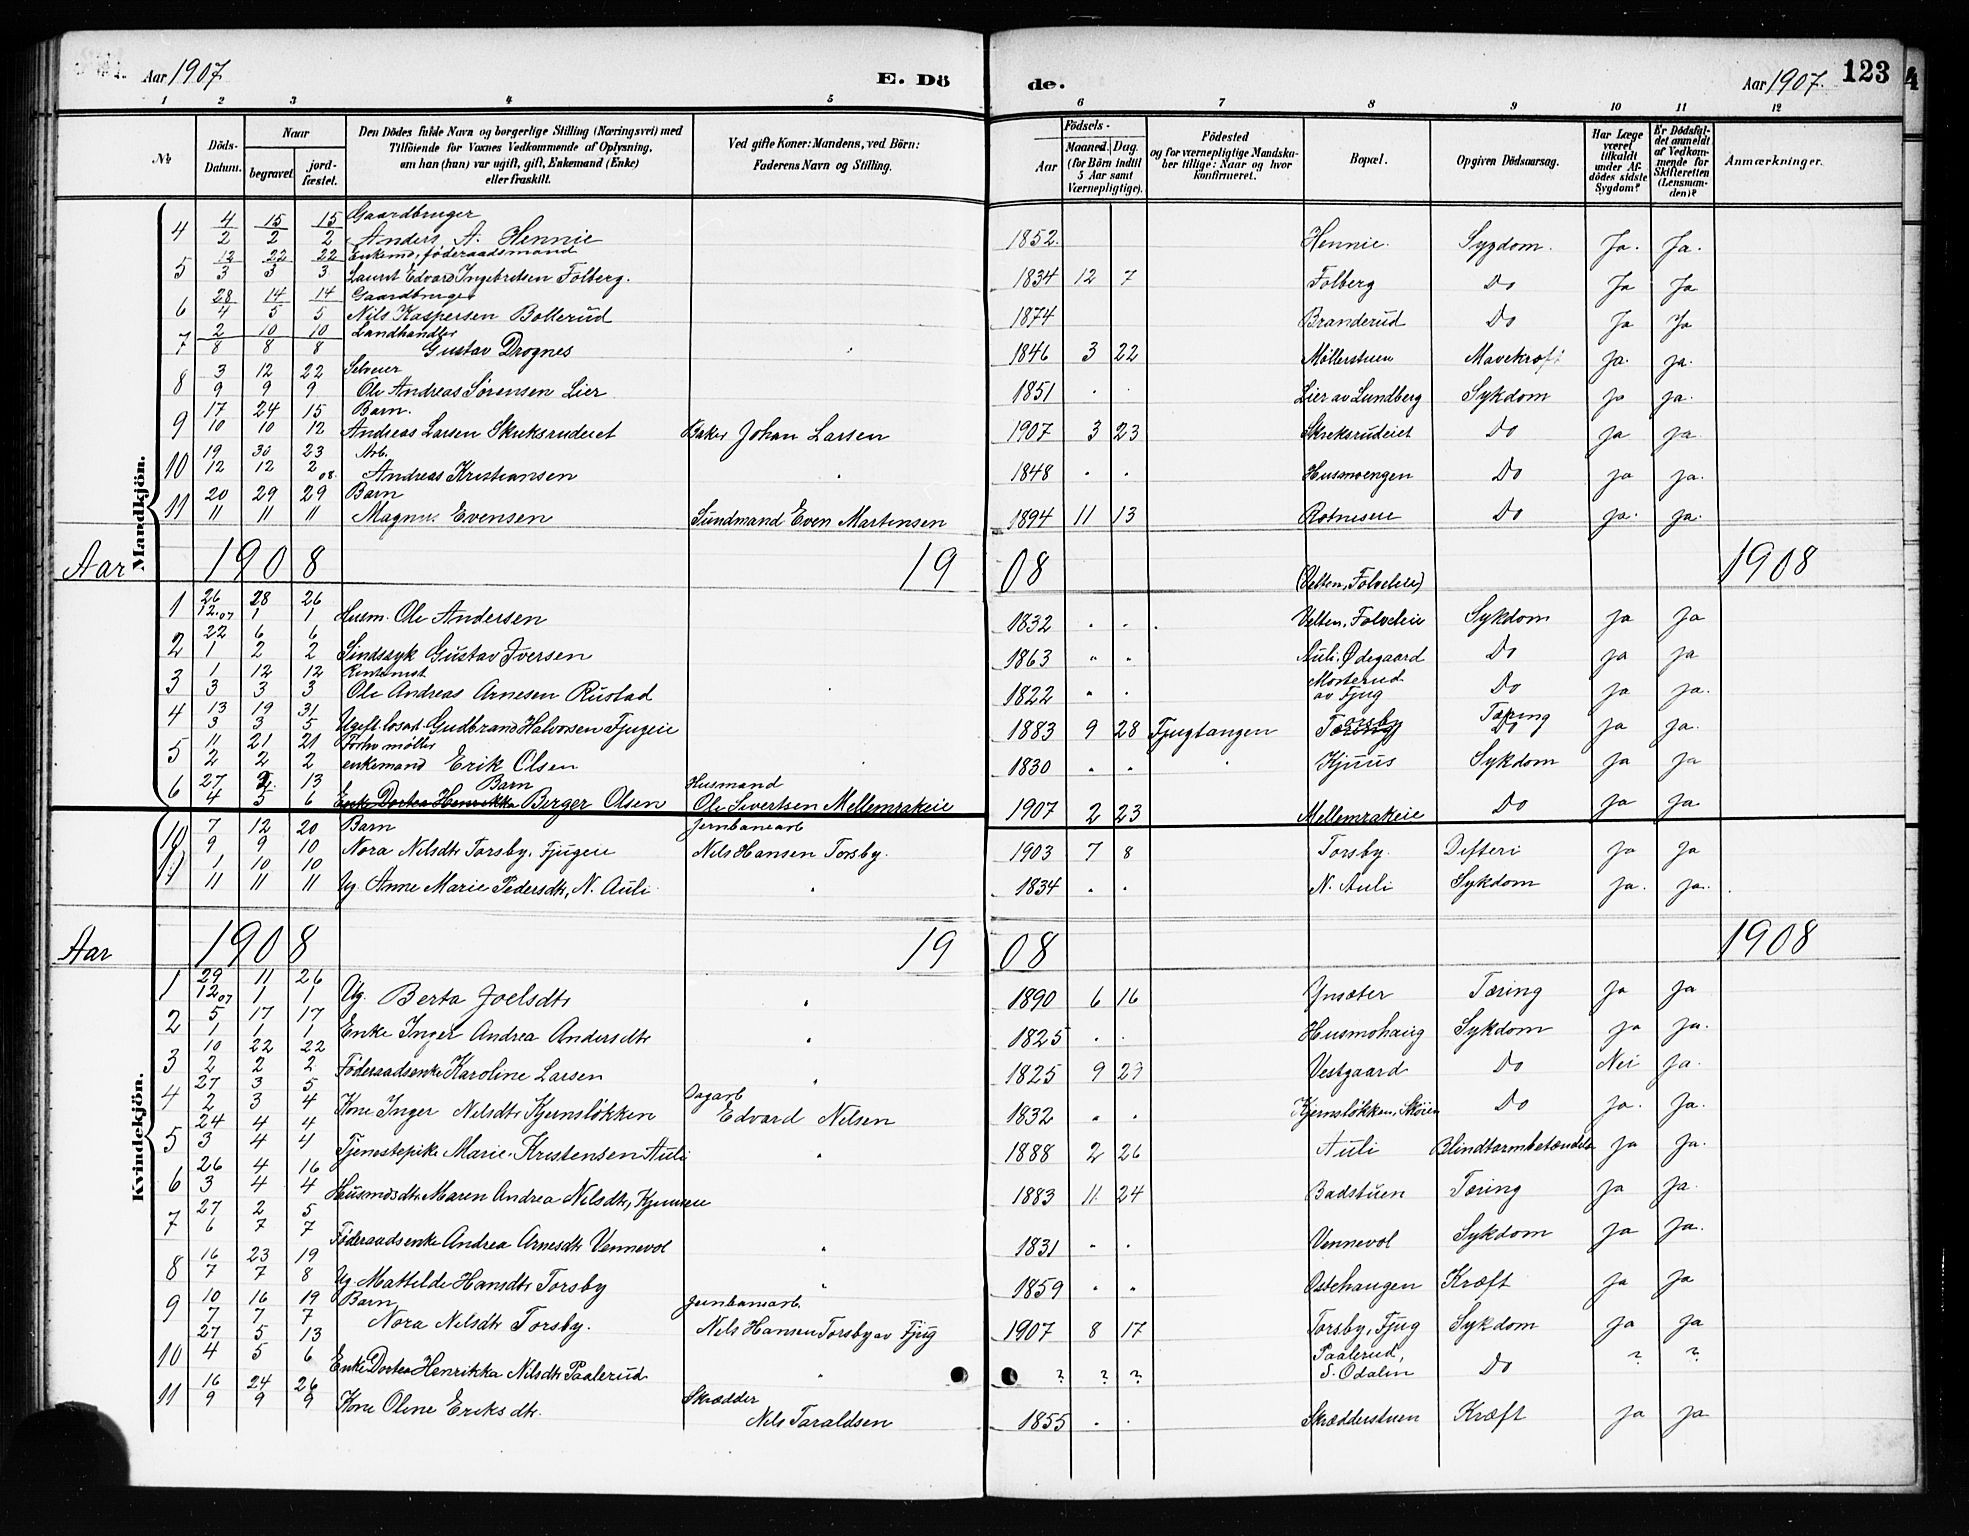 Aar 1907 E. Dö de. Aar 1907. 123
1 2 3 4 5 6 7 8 9 10 11 12
№ Döds-Datum. Naar begravet jord-fæstet. Den Dödes fulde Navn og borgerlige Stilling (Næringsvei) med Tilföiende for Voxnes Vedkommende af Oplysning, om han (hun) var ugift, gift, Enkemand (Enke) eller fraskilt. Ved gifte Koner: Mandens, ved Börn: Faderens Navn og Stilling. Födsels- Aar Maaned. Dag. (for Börn indtil 5 Aar samt Værnepligtige). Födested og for værnepligtige Mandskaber tillige: Naar og hvor konfirmeret. Bopæl. Opgiven Dödsaarsag. Har Læge været tilkaldt under Afdödes sidste Sygdom? Er Dödsfaldet anmeldt af Vedkommende for Skifteretten (Lensmanden)? Anmærkninger.
Mandkjön.
4 4/2 15/2 15/2 Gaardbruger Anders A. Hennie 1852. Hennie. Sygdom. Ja. Ja.
5 12/3 22/3 22/3 Enkemd, föderaadsmand Laurit Edvard Ingebretsen Folberg. 1834 12 7 Folberg Do Ja Ja
6 28/4 14/5 14/5 Gaardbruger Nils Kaspersen Bollerud 1874 Branderud Do Ja Ja
7 2/8 10/8 10/8 Landhandler Gustav Drognes 1846 3 22 Møllerstuen Mavekræft ja. ja.
8 3/9 12/9 22/9 Selveier Ole Andreas Sørensen Lier 1851 . . Lier av Lundberg Sykdom ja ja.
9 17/10 24/10 15/12 Barn. Andreas Larsen Skreksrudeiet Baker Johan Larsen 1907 3 23 Skreksrudeiet Do ja ja.
10 19/12 30/12 23/2 08. Arb. Andreas Kristiansen 1848 . . Husmoengen Do ja ja.
11 20/11 29/11 29/11 Barn Magnus Evensen Sundmand Even Martensen 1894 11 13 Rotnesere Do ja. ja.
Aar 1908 1908 1908
(Velten, Folveleie)
1 26/12.07 28/1 26/1 Husm. Ole Andersen 1832 . . . Velten, Folveleie Sykdom ja ja
2 22/1 6/2 6/2 Sindssyk Gustav Iversen 1863 " " Auli. Ødegaard Do ja ja
3 1/3 12/3 12/3 Rentenist Ole Andreas Arnesen Rustad 1822 " . Mosterud av Fjug Do ja ja.
4 13/3 19/3 31/5 Ugift. losart. Gudbrand Halvorsen Fjugeie 1883 9 28 Fjugtangen Torsby Tæring Do ja ja.
5 11/2 21/2 21/2 Forhv møller enkemand Erik Olsen 1830 . . Kjuus Sykdom ja ja
6 27/4 2/5 13/6 Barn Enke Dortea Henrikke Berger Olsen Husmand Ole Sivertsen Mellemrakeie 1907 2 23 Mellemrakeie Do ja ja
Kvindekjön.
10 7/9 12/9 20/10 Barn Nora Nilsdtr Torsby, Fjugeie Jernbanearb Nils Hansen Torsby. 1903 7 8 Torsby. Difteri ja ja
11 1/11 10/11 10/11 Ug. Anne Marie Pedersdtr, N. Auli. 1834 . . N. Auli Sykdom ja. ja.
Aar 1908 1908 1908
1 29/12.07 11/1 26/1 Ug. Berta Joelsdtr 1890 6 16 Ynsæter Tæring ja ja
2 5/1 17/1 17/1 Enke Inger Andrea Andersdtr 1825 . . Husmohaug Sykdom ja ja.
3 10/2 22/2 22/2 Føderaadsenke Karoline Larsen 1825 9 23 Vestgaard Do Nei ja.
4 27/2 3/3 5/4 Kone Inger Nilsdtr Kjernsløkken Dagarb Edvard Nilsen 1832 " . Kjernsløkken, Skøien Do ja. ja.
5 24/3 4/4 4/4 Tjenestepike Marie Kristensen Auli 1888 2 26 Auli Blindtarmbetændelse ja ja.
6 26/3 4/4 16/4 Husmdsdtr Maren Andrea Nilsdtr, Kjuuseie 1883 11 24 Badstuen Tæring ja ja.
7 27/6 2/7 5/7 Føderaadsenke Andrea Arnesdtr Vennevol 1831 " . Vennevol Sykdom ja ja.
8 16/7 23/7 19/8 Ug Mattilde Hansdtr Torsby 1859 " " Ostehaugen Kræft ja ja
9 10/7 16/7 19/7 Barn Nora Nilsdtr Torsby. Jernbanearb. Nils Hansen Torsby av Fjug 1907 8 17 Torsby, Fjug Sykdom ja ja
10 27/4 5/5 13/6 Enke Dortea Henrikka Nilsdtr Paalerud ? ? ? Paalerud, S. Odalen Do ? ?
11 16/9 24/9 26/9 Kone Oline Eriksdtr. Skrædder Nils Taraldsen 1855 . . Skrædderstuen Kræft ja ja